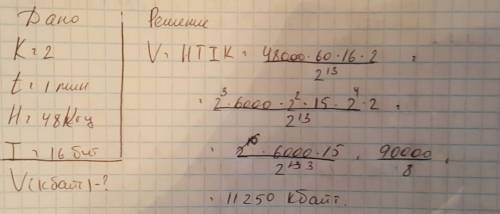 Дано
K = 2
t = 1 мин
H = 48 Кгц
I = 16 бит
V (кбайт) - ?
Решение
V = HTIK = 48000·60·16·2 / 2^13 =
= 2^3·6000·2^2·15·2^4·2 / 2^13 =
= 2^10·6000·15 / 2^13 3 = 90000 / 8 =
= 11250 Кбайт.